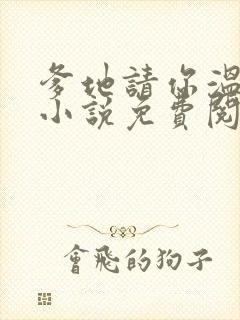 爹地請你溫
小說免費閱
會飛的狗子